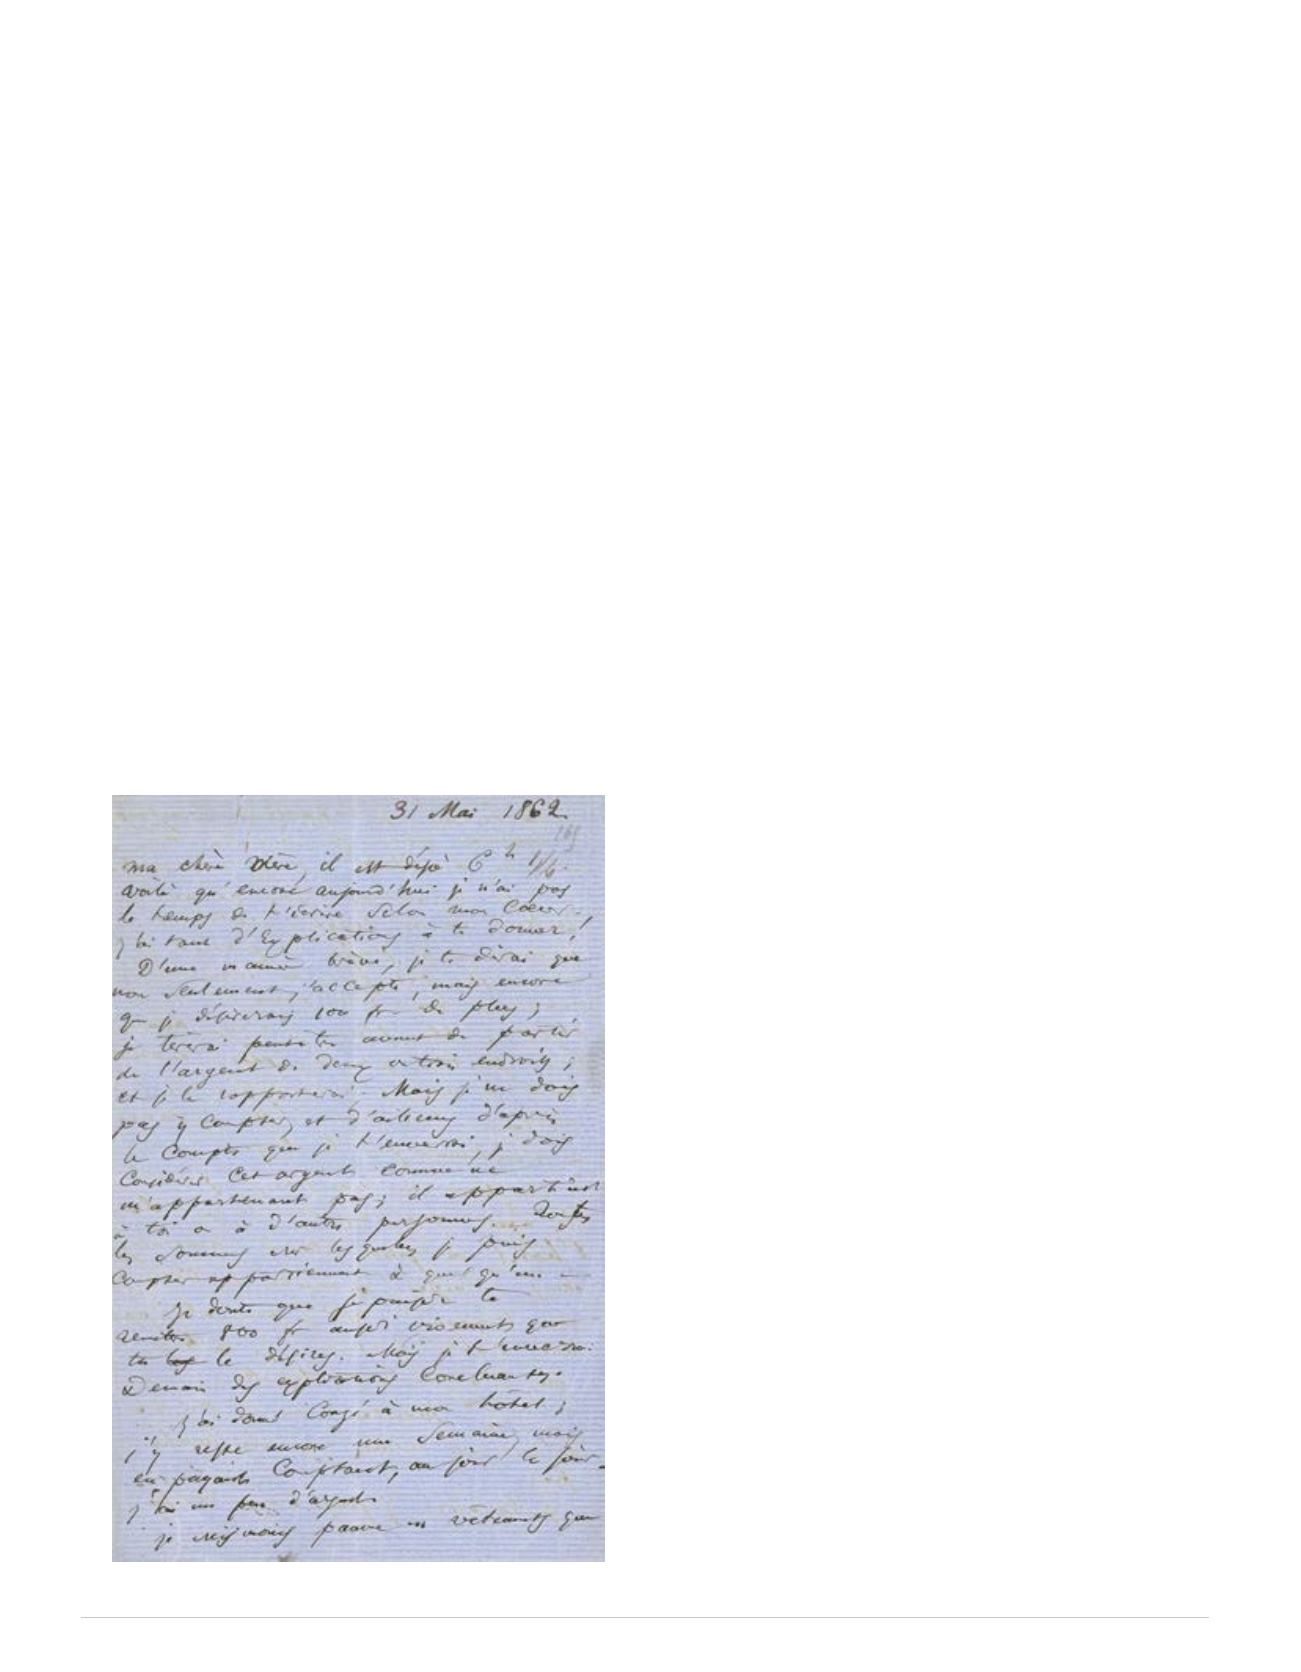 31 Mai 1862.
ma chère Mère, il est déjà 6 h 1/2.
voilà qu'encore aujourd'hui je n'ai pas
le temps de t'écrire selon mon Cœur.
j'ai tant d'Explications à te donner!
D'une manière brève, je te dirai que
non seulement j'accepte, mais encore
que je désirerais 100 fr de plus;
je peut-être avant de partir
de l'argent de deux ou trois endroits;
et je le rapporterai. Mais je ne dois
pas y compter, et d'ailleurs d'après
le Compte que je t'enverrai, je dois
Considérer cet argent comme ne
m'appartenant pas; il appartient
à toi ou à d'autres personnes. Toutes
les Sommes sur lesquelles je puis
Compter appartiennent à quelqu'un
Je doute que je puisse te
800 fr aussi vivement que
tu le désires. Mais je t'enverrai
Demain des explications Concluantes.
j'ai donné Congé à mon hôtel;
j'y reste encore une Semaine, mais
en payant Comptant, au jour le jour.
j'ai un peu d'argent.
je suis moins pauvre en vêtements que